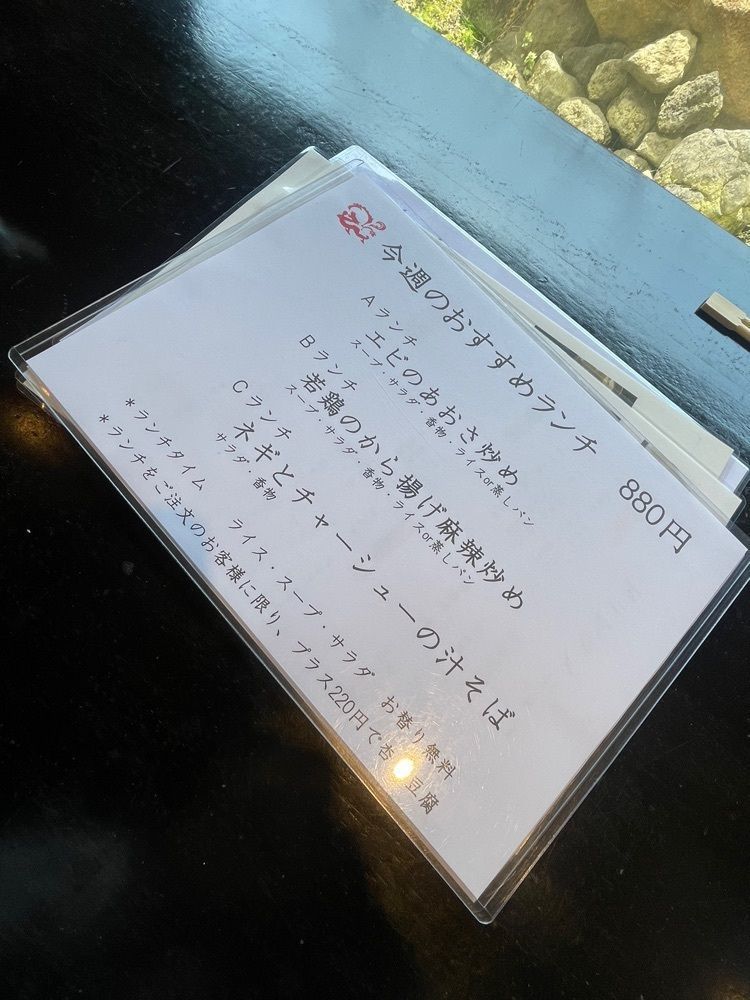 今週のおすすめランチ 880円
Aランチ
エビのあおさ炒め
スープ・サラダ・香物・ライスor蒸しパン
Bランチ
若鶏のから揚げ麻辣炒め
スープ・サラダ・香物・ライスor蒸しパン
Cランチ
ネギとチャーシューの汁そば
サラダ・香物
*ランチタイム ライス・スープ・サラダ お替り無料
*ランチをご注文のお客様に限り、プラス220円で杏 豆腐